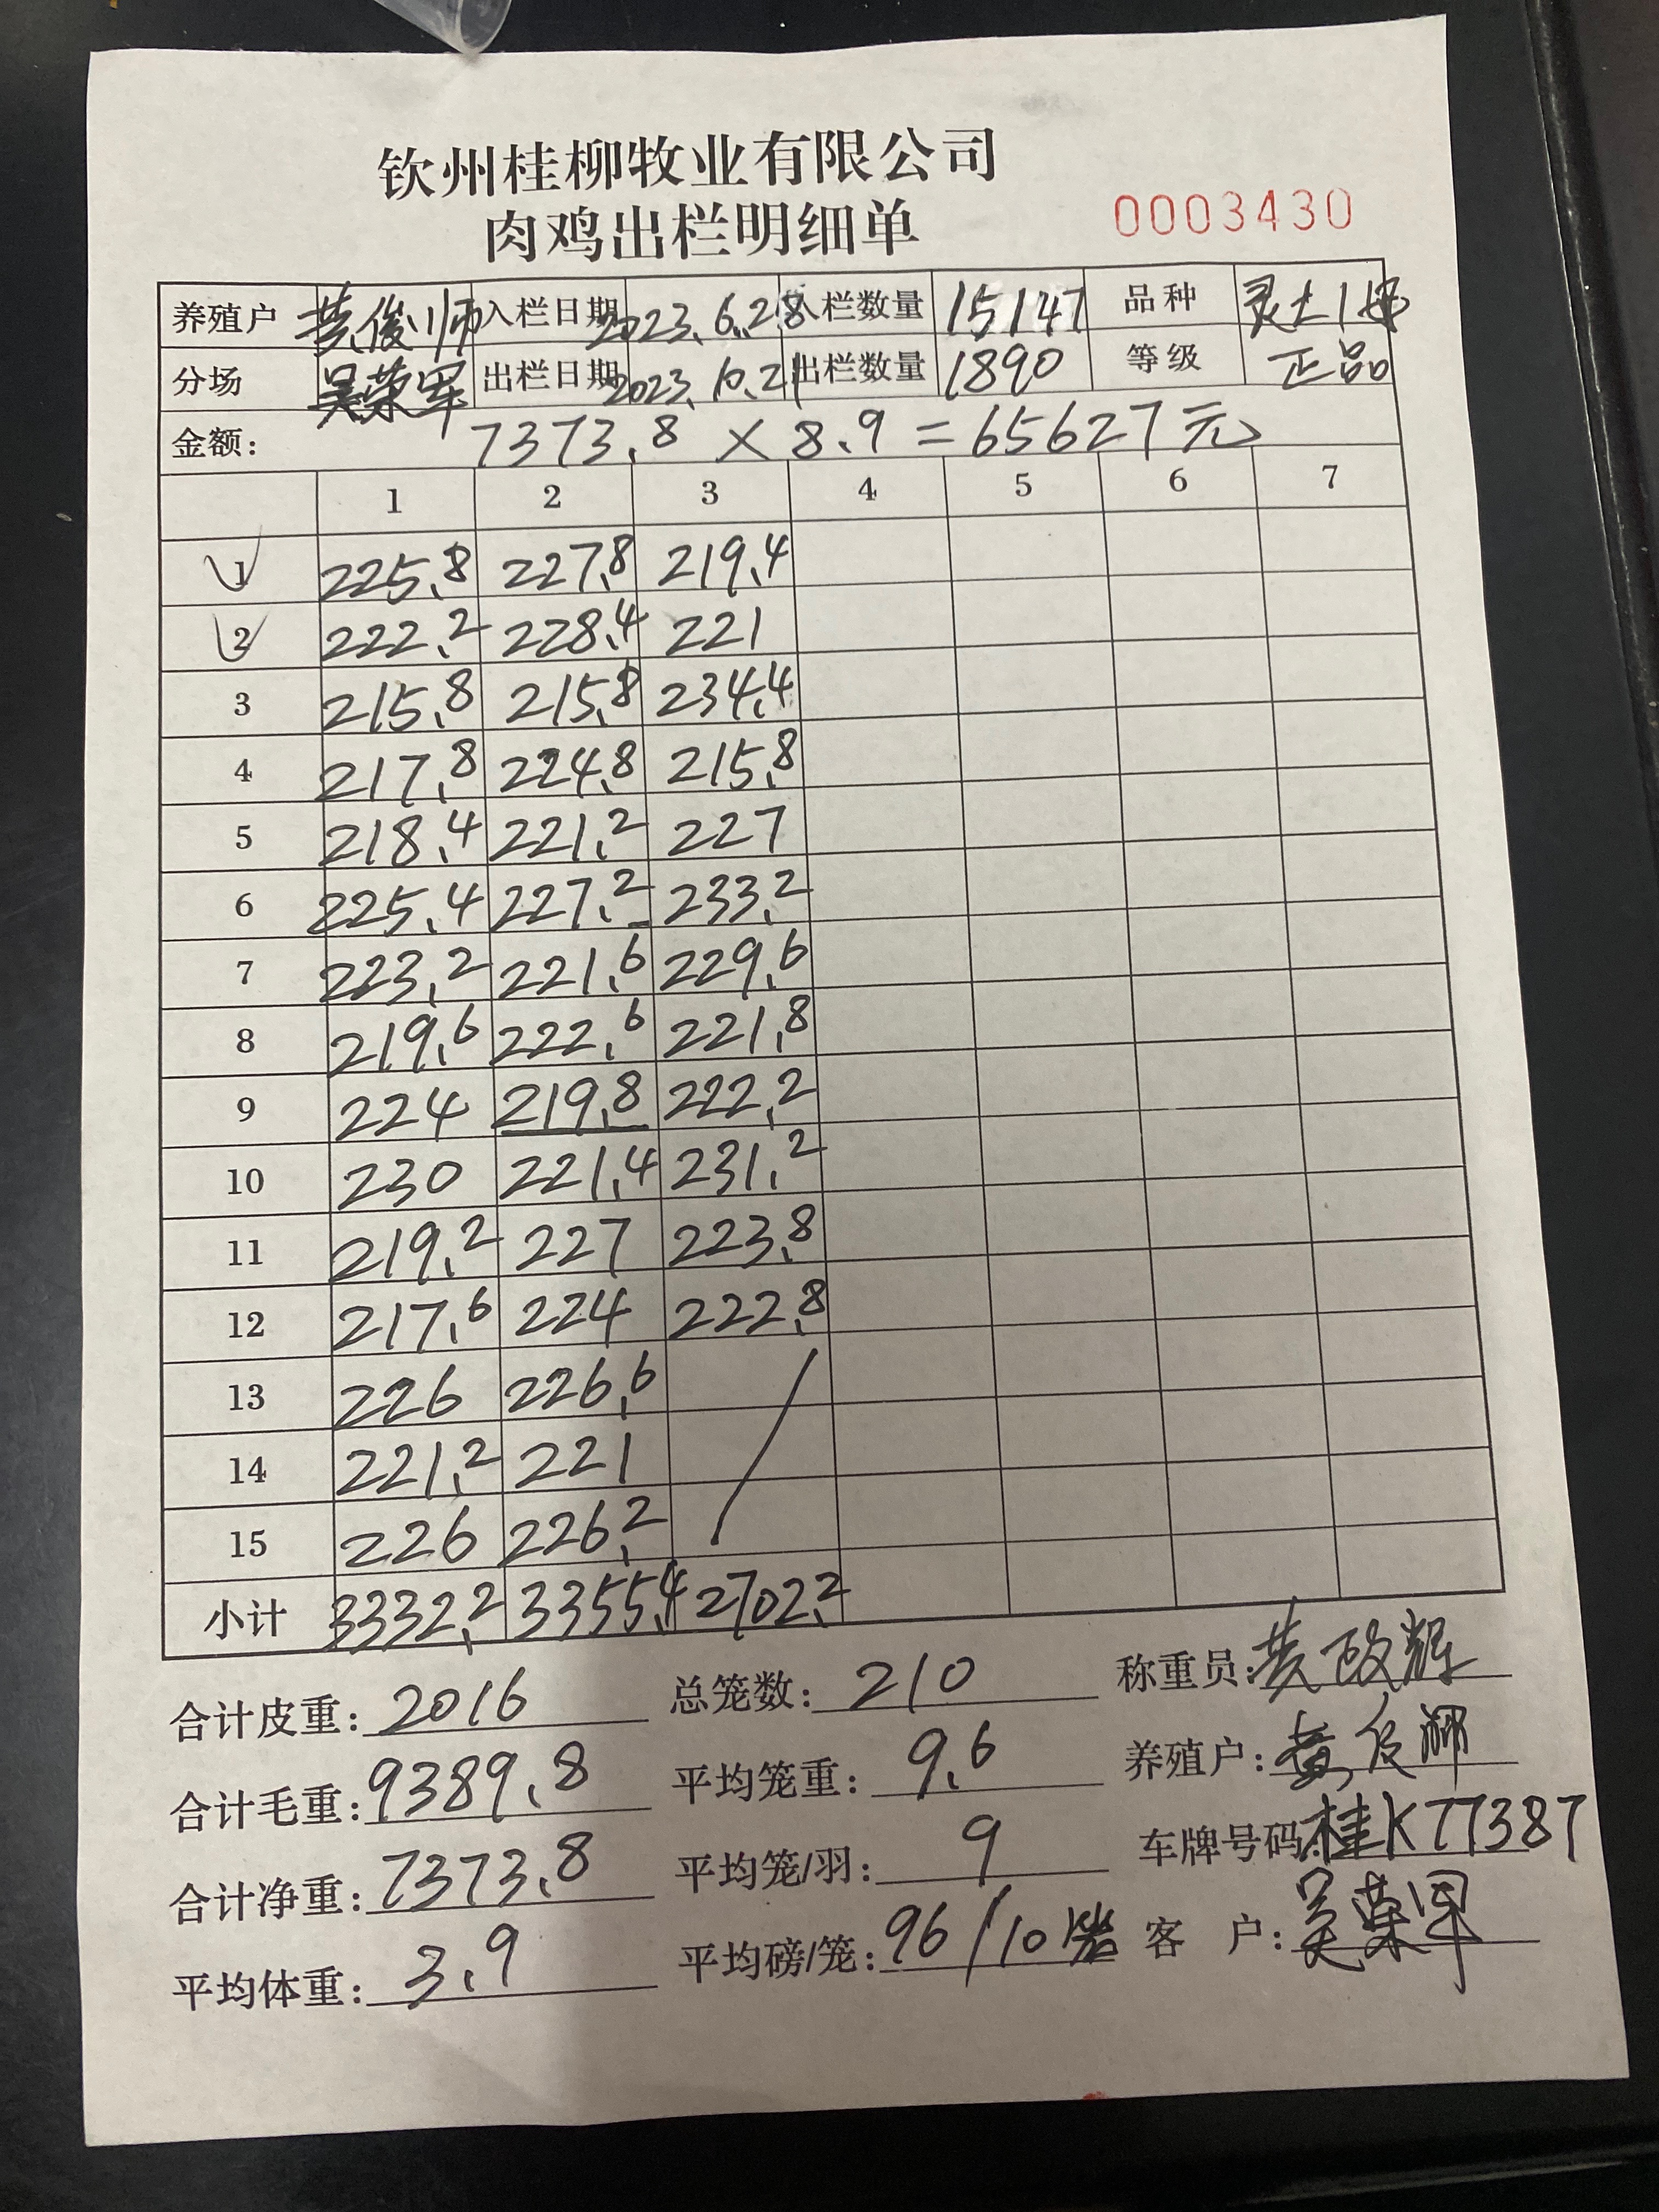 钦州桂柳牧业有限公司
肉鸡出栏明细单 0003430
养殖户 黄俊师 入栏日期 2023.6.28 入栏数量 15147 品种 灵土1母
分场 吴荣军 出栏日期 2023.10.21 出栏数量 1890 等级 正品
金额: 7373.8 × 8.9 = 65627元
1 2 3 4 5 6 7
1 225.8 227.8 219.4
2 222.2 228.4 221
3 215.8 215.8 234.4
4 217.8 224.8 215.8
5 218.4 221.2 227
6 225.4 227.2 233.2
7 223.2 221.6 229.6
8 219.6 222.6 221.8
9 224 219.8 222.2
10 230 221.4 231.2
11 219.2 227 223.8
12 217.6 224 222.8
13 226 226.6
14 221.2 221
15 226 226.2
小计 3332.2 3355.4 2702.2
合计皮重: 2016 总笼数: 210 称重员: 黄
合计毛重: 9389.8 平均笼重: 9.6 养殖户: 黄俊
合计净重: 7373.8 平均笼/羽: 9 车牌号码: 桂K77387
平均体重: 3.9 平均磅/笼: 96/10 客户: 吴荣军